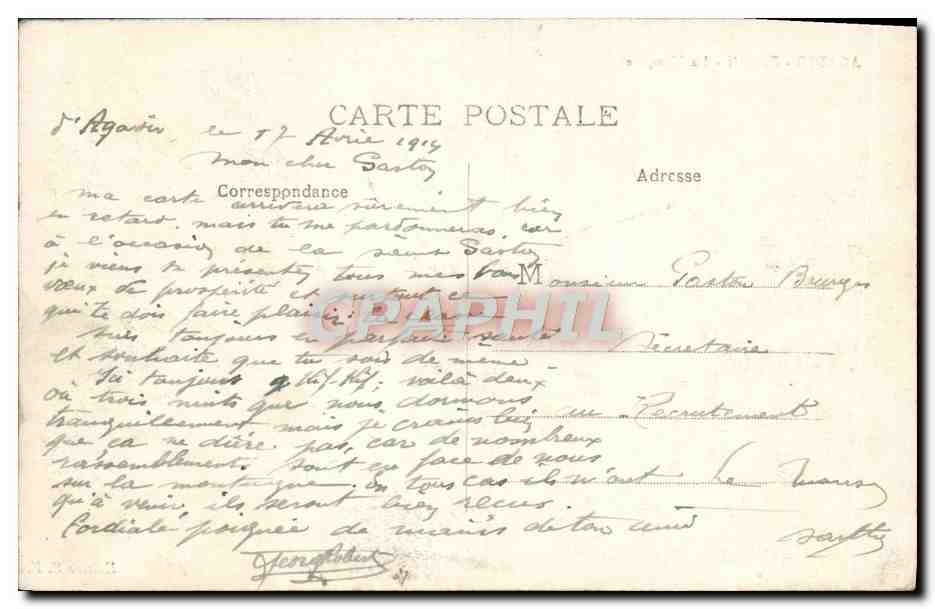 CARTE POSTALE
d'Agadir, le 17 Avril 1914
mon cher Gaston
Correspondance
Adresse
ma carte arrivera sûrement bien
en retard, mais tu me pardonneras, car
à l'occasion de la Gaston
je viens te présenter tous mes bons
vœux de prospérité et surtout
que te dois faire plaisir:
suis toujours en parfaite santé
et souhaite que tu sois de même
Ici toujours Kif-Kif: voilà deux
où trois nuits que nous dormons
tranquillement mais je crains bien
que ça ne dure pas, car de nombreux
rassemblements sont en face de nous
sur la montagne. en tous cas ils n'ont
qu'à venir, ils seront bien reçus.
Cordiale poignée de mains de ton ami
Georg Robert
Monsieur Gaston Bourges
Secrétaire
au Recrutement
Le Mans
Sarthe
CPAPHIL